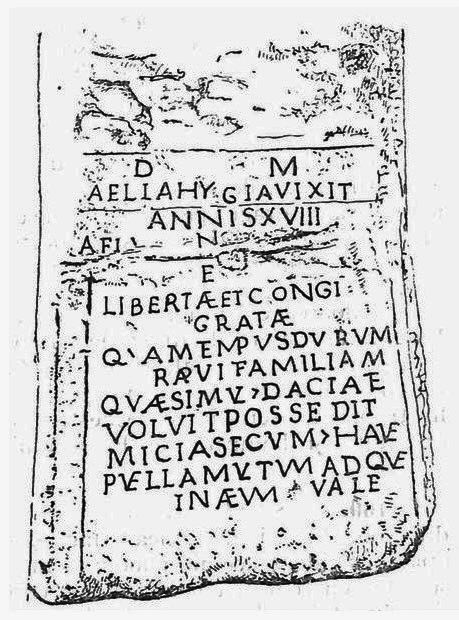 D M
AELIAHYGIAVIXIT
ANNISXVIII
AFI N
E
LIBERTÆETCONGI
GRATÆ
QVAMEMPVSDVRVM
RÆVIFAMILIAM
QVÆSIMV>DACIAE
VOLVITPOSSEDIT
MICIASECVM>HAVE
PVELLAMVLTVMADQVE
INÆVM VALE